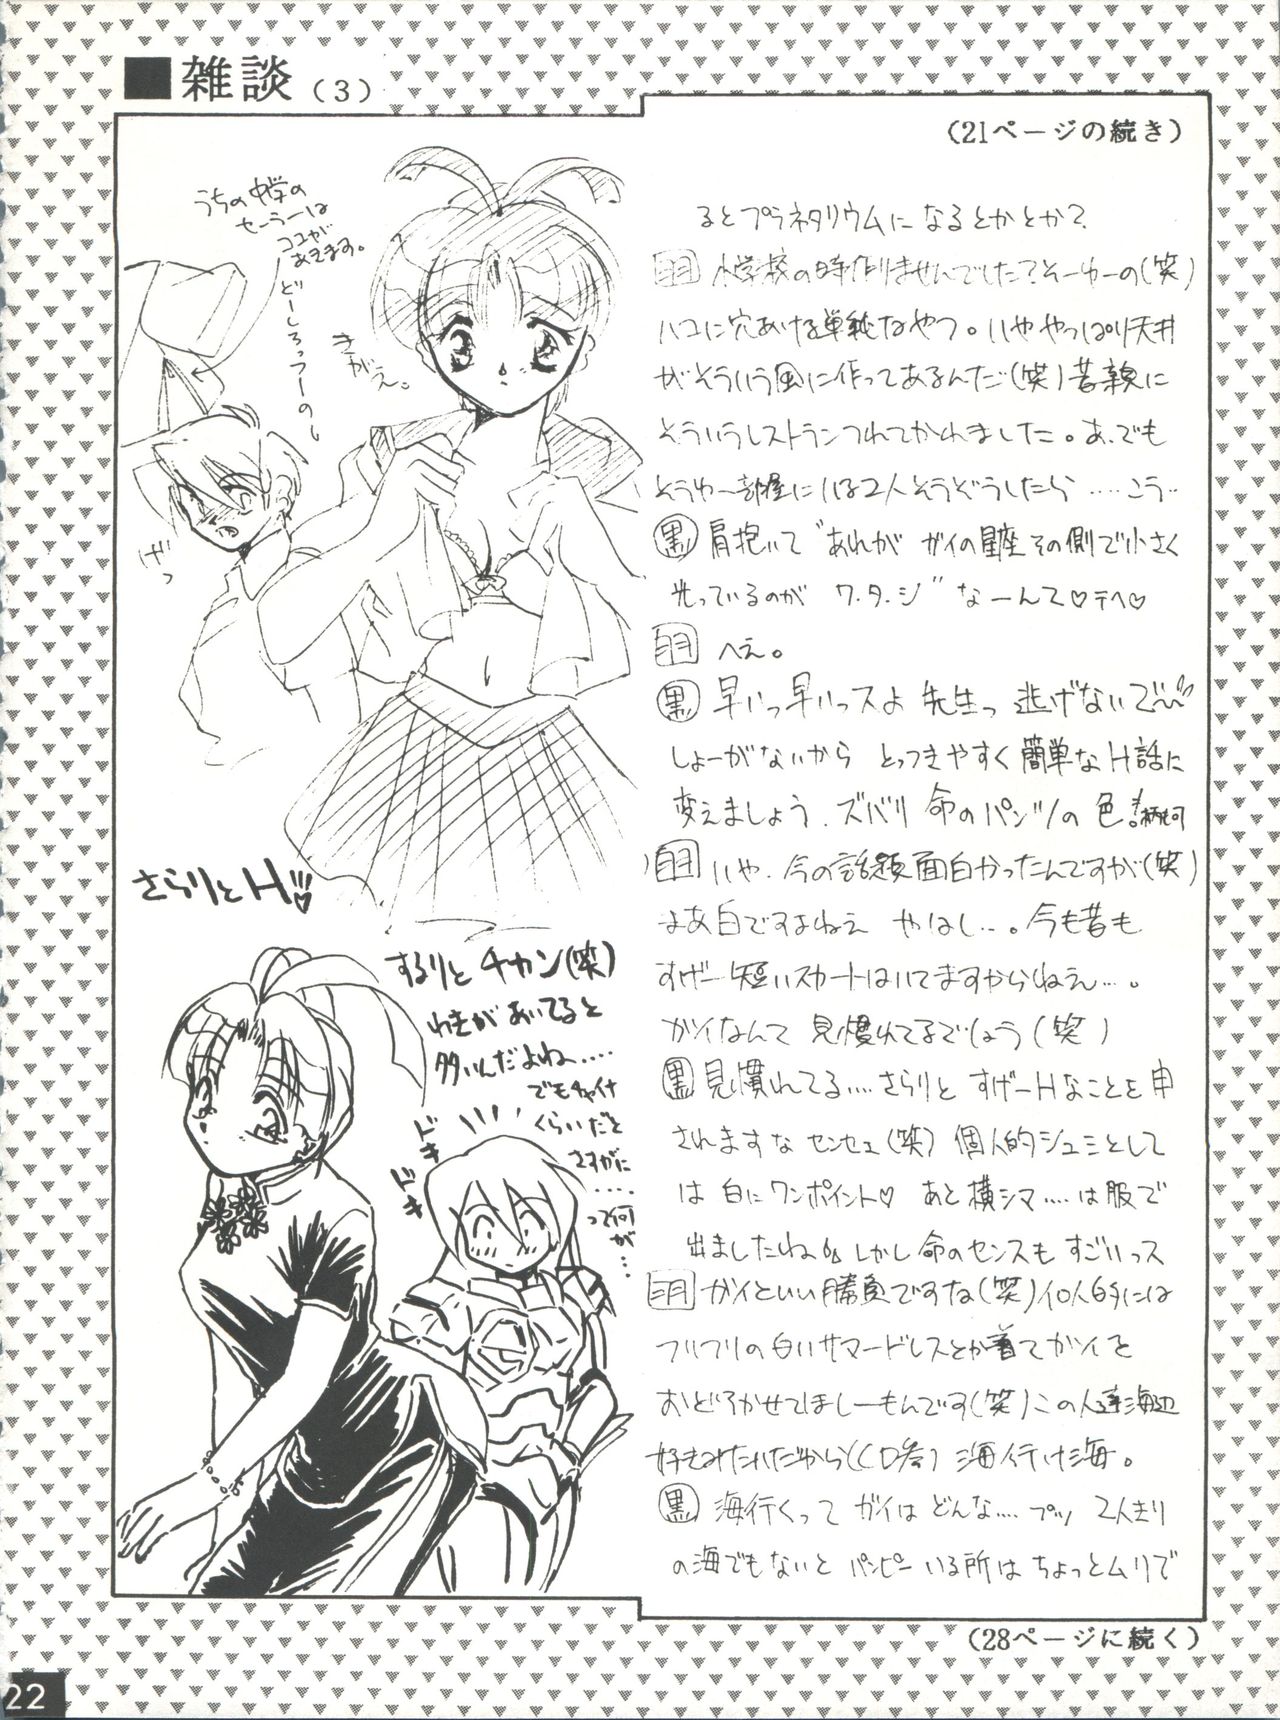 ■雑談(3)
(21ページの続き)
うちの中学の
セーラーは
ココが
あきます。
どーしろっつーの
きがえ。
さらりとH♡
するりとチカン(笑)
わきがあいてると
多いんだよねー‥‥
でもチャイナ
くらいだと
さすがに
‥‥
って何が‥‥
ドキ
ドキ
るとプラネタリウムになるとかとか?
羽 小学校の時作りませんでした?そーゆーの(笑)
ハコに穴あける単純なやつ。いややっぱり天井
がそういう風に作ってあるんだ(笑)昔親に
そういうレストランつれてかれました。あ、でも
そうゆー部屋にいる2人そうぞうしたら‥‥こう‥
黒 肩抱いて“あれがガイの星座その側で小さく
光っているのが ワ・タ・シ”なーんて♡テヘ♡
羽 へえ。
黒 早いっ早いっスよ 先生っ 逃げないで〜
しょーがないから とっつきやすく簡単なH話に
変えましょう。ズバリ 命のパンツの色!
羽 いや、今の話題面白かったんですが(笑)
まあ白ですよねえ やはし‥‥。今も昔も
すげー短いスカートはいてますからねえ‥‥。
ガイなんて 見慣れてるでしょう(笑)
黒 見慣れてる‥‥さらりと すげーHなことを申
されますな センセェ(笑)個人的シュミとして
は 白にワンポイント♡ あと横シマ‥‥は服で
出ましたね しかし命のセンスもすごいっス
羽 ガイといい勝負ですな(笑)個人的には
フリフリの白いサマードレスとか着てガイを
おどろかせてほしーもんです(笑)この人達海辺
好きみたいだから(CD参)海行け海。
黒 海行くって ガイはどんな‥‥プッ 2人きり
の海でもないと パンピーいる所はちょっとムリで
(28ページに続く)
22